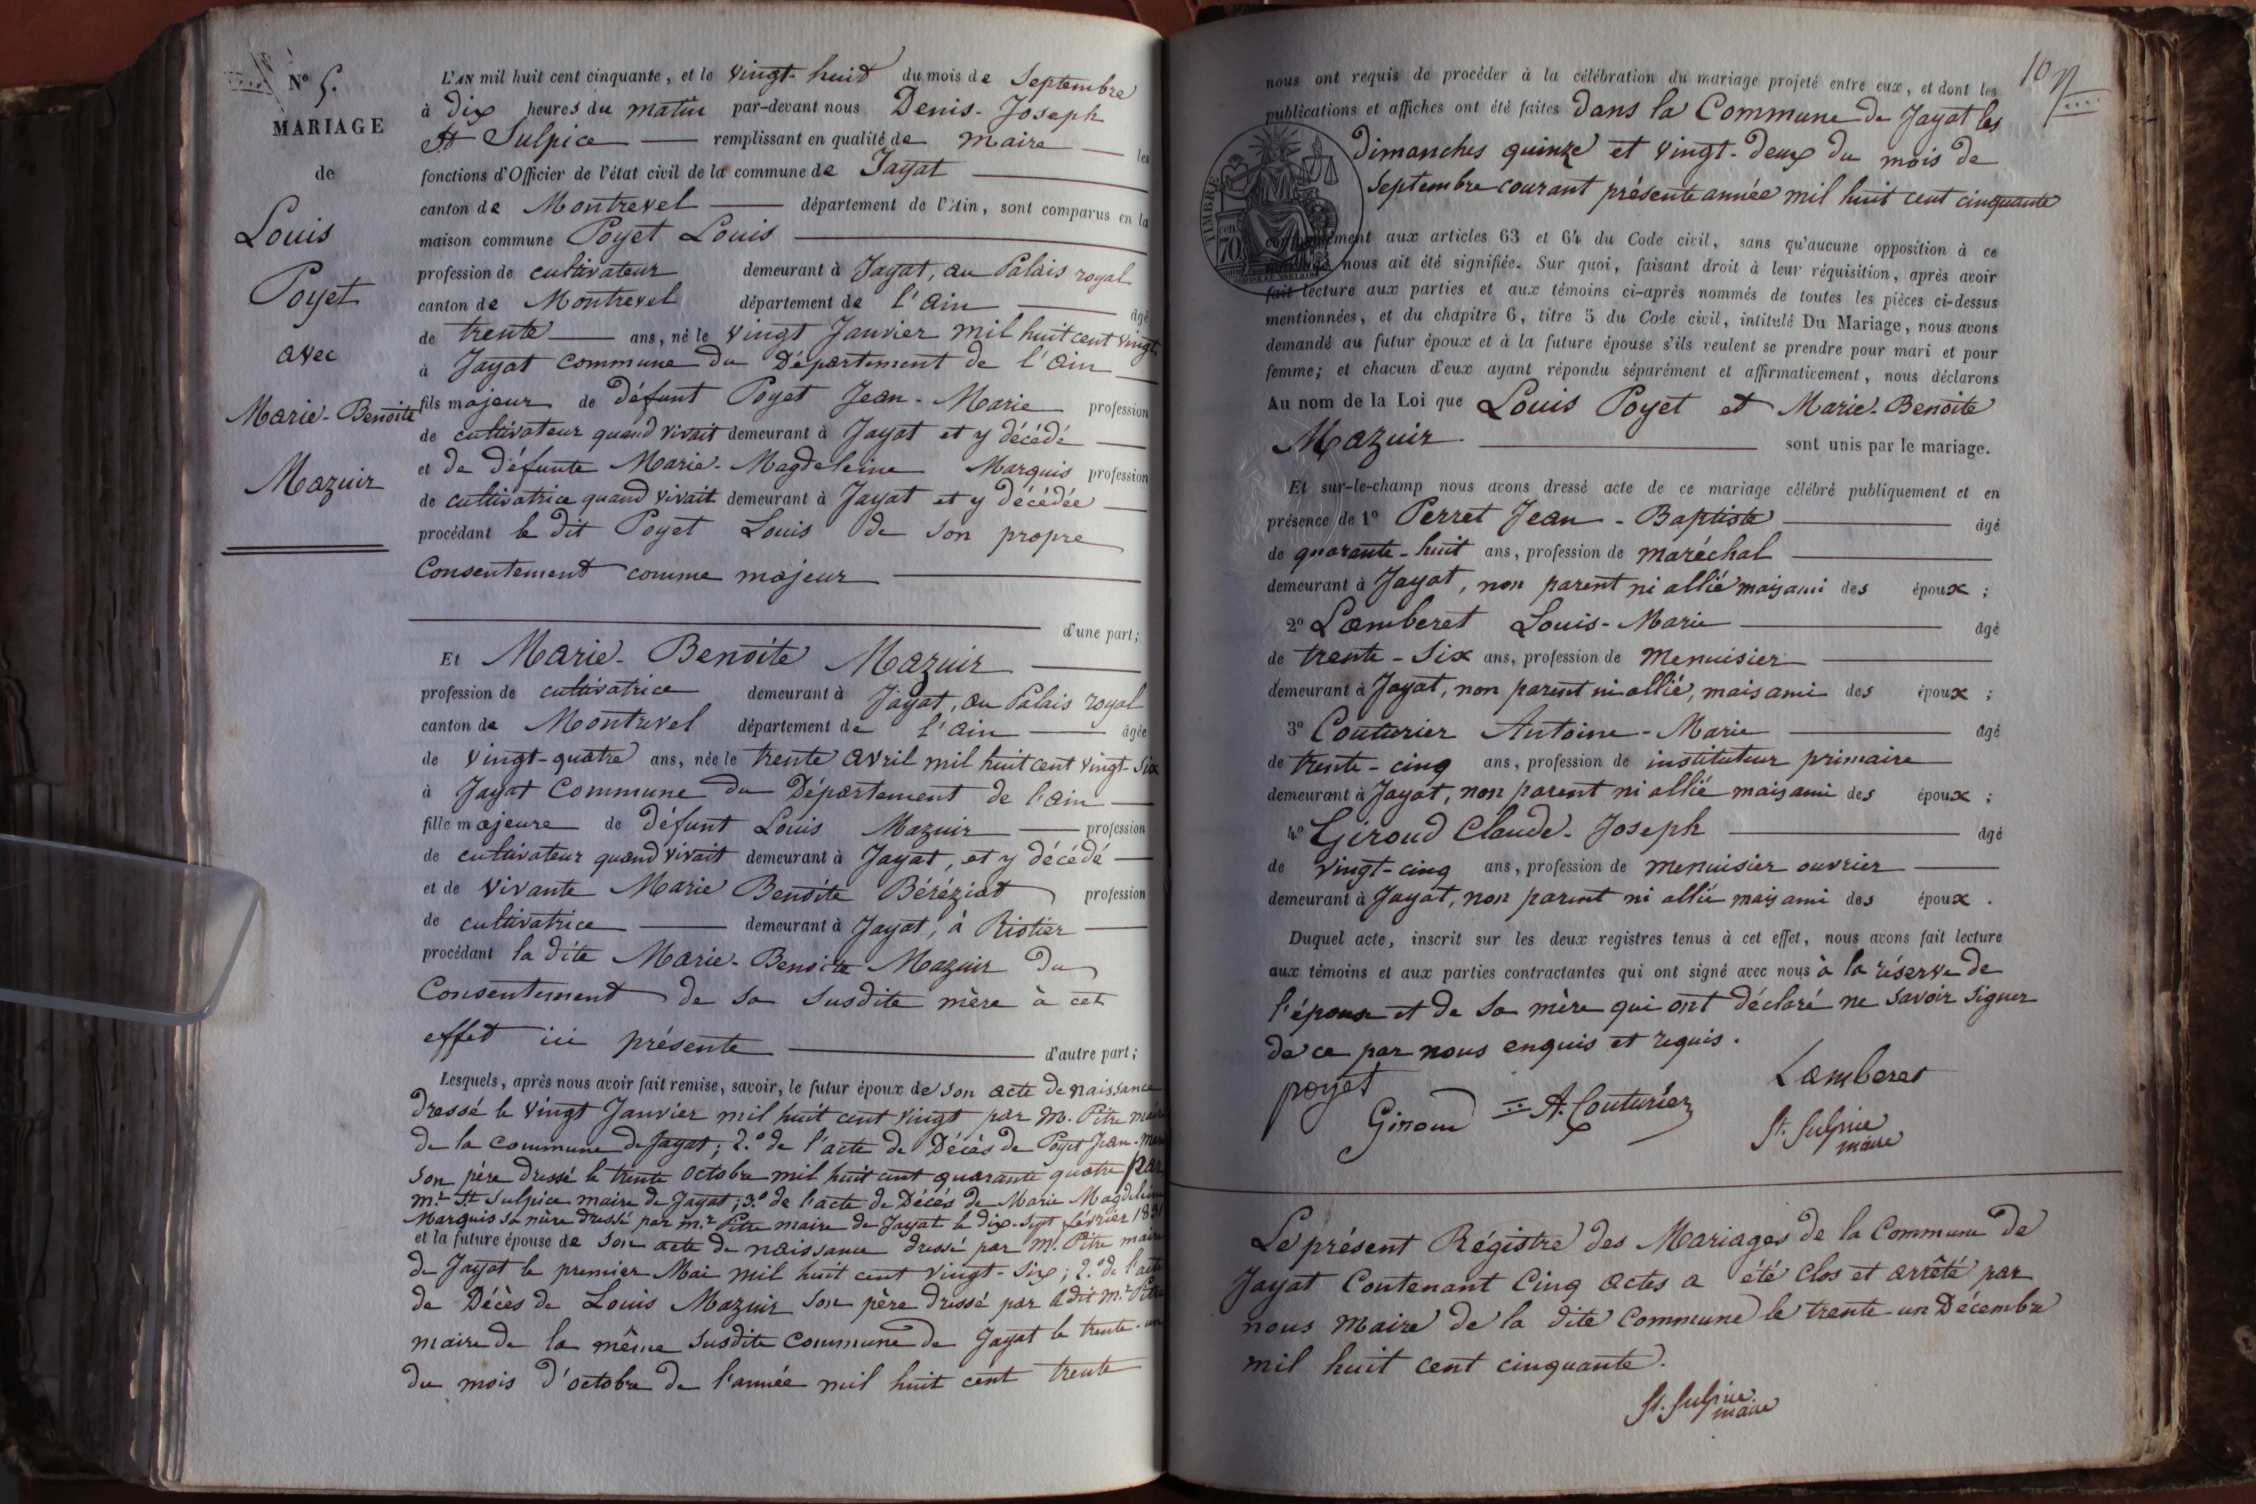 N° 5.
MARIAGE
de
Louis
Poyet
avec
Marie-Benoite
Mazuir
L'AN mil huit cent cinquante, et le vingt-huit du mois de Septembre
à dix heures du matin par-devant nous Denis-Joseph
St Sulpice remplissant en qualité de maire les
fonctions d'Officier de l'état civil de la commune de Jayat
canton de Montrevel département de l'Ain, sont comparus en la
maison commune Poyet Louis
profession de cultivateur demeurant à Jayat, au Palais royal
canton de Montrevel département de l'ain âgé
de trente ans, né le vingt Janvier mil huit cent vingt
à Jayat commune du Département de l'ain
fils majeur de défunt Poyet Jean-Marie profession
de cultivateur quand vivait demeurant à Jayat et y décédé
et de défunte Marie-Magdeleine Marquis profession
de cultivatrice quand vivait demeurant à Jayat et y décédée
procédant le dit Poyet Louis de son propre
Consentement comme majeur
d'une part;
Et Marie-Benoite Mazuir
profession de cultivatrice demeurant à Jayat, au Palais royal
canton de Montrevel département de l'ain âgée
de vingt-quatre ans, née le trente avril mil huit cent vingt-six
à Jayat Commune du Département de l'ain
fille majeure de défunt Louis Mazuir profession
de cultivateur quand vivait demeurant à Jayat, et y décédé
et de vivante Marie Benoite Béréziat profession
de cultivatrice demeurant à Jayat, à Riotier
procédant la dite Marie-Benoite Mazuir du
Consentement de sa susdite mère à cet
effet ici présente d'autre part;
Lesquels, après nous avoir fait remise, savoir, le futur époux de son acte de naissance
dressé le vingt Janvier mil huit cent vingt par M. Pitre maire
de la commune de Jayat; 2.° de l'acte de Décès de Poyet Jean-Marie
son père dressé le trente octobre mil huit cent quarante quatre par
mr. St Sulpice maire de Jayat; 3.° de l'acte de Décès de Marie Magdeleine
Marquis sa mère dressé par mr. Pitre maire de Jayat le dix-sept février
et la future épouse de son acte de naissance dressé par M. Pitre maire
de Jayat le premier Mai mil huit cent vingt-six; 2.° de l'acte
de Décès de Louis Mazuir son père dressé par le dit mr. Pitre
maire de la même susdite commune de Jayat le trente-un
du mois d'octobre de l'année mil huit cent trente
10
nous ont requis de procéder à la célébration du mariage projeté entre eux, et dont les
publications et affiches ont été faites dans la Commune de Jayat les
dimanches quinze et vingt-deux du mois de
Septembre courant présente année mil huit cent cinquante
TIMBRE
70
conformément aux articles 63 et 64 du Code civil, sans qu'aucune opposition à ce
mariage nous ait été signifiée. Sur quoi, faisant droit à leur réquisition, après avoir
fait lecture aux parties et aux témoins ci-après nommés de toutes les pièces ci-dessus
mentionnées, et du chapitre 6, titre 5 du Code civil, intitulé Du Mariage, nous avons
demandé au futur époux et à la future épouse s'ils veulent se prendre pour mari et pour
femme; et chacun d'eux ayant répondu séparément et affirmativement, nous déclarons
Au nom de la Loi que Louis Poyet et Marie-Benoite
Mazuir sont unis par le mariage.
Et sur-le-champ nous avons dressé acte de ce mariage célébré publiquement et en
présence de 1° Perret Jean-Baptiste âgé
de quarante-huit ans, profession de maréchal
demeurant à Jayat, non parent ni allié mais ami des époux;
2° Lamberet Louis-Marie âgé
de trente-six ans, profession de Menuisier
demeurant à Jayat, non parent ni allié, mais ami des époux;
3° Couturier Antoine-Marie âgé
de trente-cinq ans, profession de instituteur primaire
demeurant à Jayat, non parent ni allié mais ami des époux;
4° Giroud Claude-Joseph âgé
de vingt-cinq ans, profession de menuisier ouvrier
demeurant à Jayat, non parent ni allié mais ami des époux.
Duquel acte, inscrit sur les deux registres tenus à cet effet, nous avons fait lecture
aux témoins et aux parties contractantes qui ont signé avec nous à la réserve de
l'épouse et de sa mère qui ont déclaré ne savoir signer
de ce par nous enquis et requis.
poyet Lamberet
Giroud A. Couturier St. Sulpice
maire
Le présent Régistre des Mariages de la Commune de
Jayat Contenant Cinq actes a été clos et arrêté par
nous Maire de la dite Commune le trente-un Décembre
mil huit cent cinquante.
St. Sulpice
maire